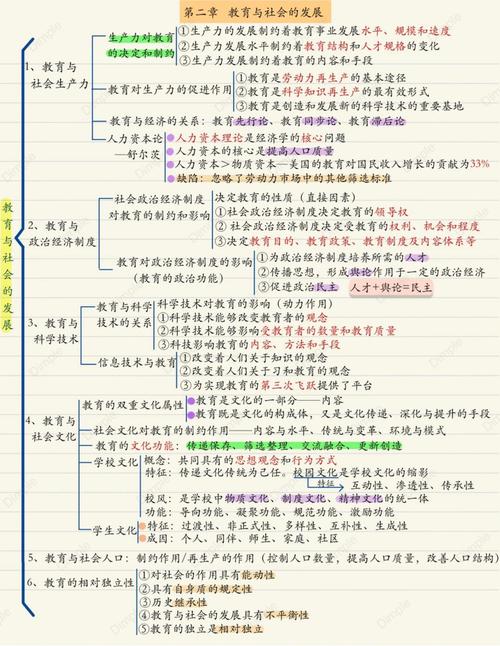 第二章 教育与社会的发展
教育与社会的发展
1、教育与社会生产力
生产力对教育的决定和制约
①生产力的发展制约着教育事业发展水平、规模和速度
②生产力发展水平制约着教育结构和人才规格的变化
③生产力发展制约着教育的内容和手段
教育对生产力的促进作用
①教育是劳动力再生产的基本途径
②教育是科学知识再生产的最有效形式
③教育是创造和发展新的科学技术的重要基地
教育与经济的关系：教育先行论、教育同步论、教育滞后论
人力资本论—舒尔茨
人力资本理论是经济学的核心问题
人力资本的核心是提高人口质量
人力资本＞物质资本—美国的教育对国民收入增长的贡献为33%
缺陷：忽略了劳动力市场中的其他筛选标准
2、教育与政治经济制度
社会政治经济制度对教育的制约和影响
决定教育的性质（直接因素）
①社会政治经济制度决定教育的领导权
②社会政治经济制度决定受教育的权利、机会和程度
③决定教育目的、教育政策、教育制度及内容体系等
教育对政治经济制度的影响（教育的政治功能）
①为政治经济制度培养所需的人才
②传播思想，形成舆论作用于一定的政治经济
③促进政治民主 人才+舆论=民主
3、教育与科学技术
教育与科学技术的关系
科学技术对教育的影响（动力作用）
①科学技术能够改变教育者的观念
②科学技术能够影响受教育者的数量和教育质量
③科技影响教育的内容、方法和手段
信息技术与教育
①改变着人们关于知识的观念
②改变着人们关于习和教育的观念
③为实现教育的第三次飞跃提供了平台
4、教育与社会文化
教育的双重文化属性
教育是文化的一部分——内容
教育既是文化的构成体，又是文化传递、深化与提升的手段
社会文化对教育的制约作用——内容与水平、传统与变革、环境与模式
教育的文化功能：传递保存、筛选整理、交流融合、更新创造
学校文化
概念：共同具有的思想观念和行为方式
特征：传递文化传统为己任。校园文化是学校文化的缩影
特征 互动性、渗透性、传承性
校风：是学校中物质文化、制度文化、精神文化的统一体
功能：导向功能、凝聚功能、规范功能、激励功能
学生文化
特征：过渡性、非正式性、多样性、互补性、生成性
成因：个人、同伴、师生、家庭、社区
5、教育与社会人口：制约作用/再生产的作用（控制人口数量，提高人口质量，改善人口结构）
6、教育的相对独立性
①对社会的作用具有能动性
②具有自身质的规定性
③历史继承性
④教育与社会的发展具有不平衡性
⑤教育的独立是相对独立
Dimple